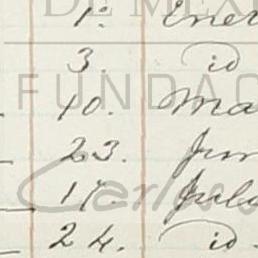 DE MÉX
1º Ener
3. id
FUNDAC
10. Ma
23. Jun
17. Julo
Carlos
24. id